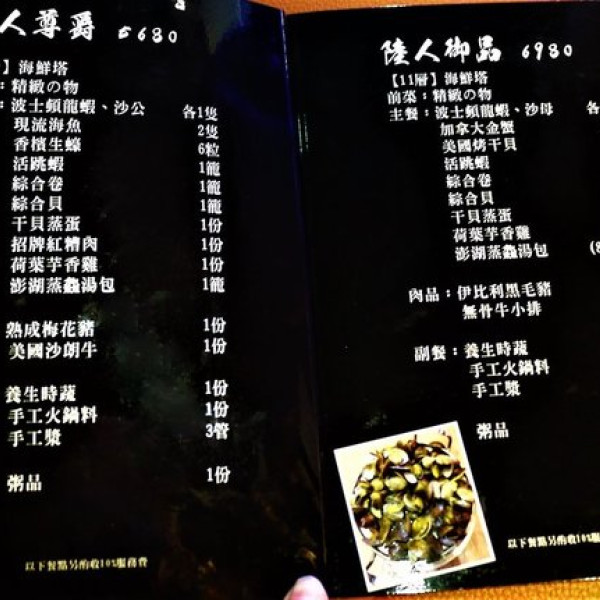 人尊爵 5680
】海鮮塔
：精緻の物
：波士頓龍蝦、沙公 各1隻
現流海魚 2隻
香檳生蠔 6粒
活跳蝦 1籠
綜合卷 1籠
綜合貝 1籠
干貝蒸蛋 1份
招牌紅糟肉 1份
荷葉芋香雞 1份
澎湖蒸鱻湯包 1籠
熟成梅花豬 1份
美國沙朗牛 1份
養生時蔬 1份
手工火鍋料 1份
手工漿 3管
粥品 1份
以下餐點另酌收10%服務費
陸人御品 6980
【11層】海鮮塔
前菜：精緻の物
主餐：波士頓龍蝦、沙母 各
加拿大金蟹
美國烤干貝
活跳蝦
綜合卷
綜合貝
干貝蒸蛋
荷葉芋香雞
澎湖蒸鱻湯包 (8
肉品：伊比利黑毛豬
無骨牛小排
副餐：養生時蔬
手工火鍋料
手工漿
粥品
以下餐點另酌收10%服